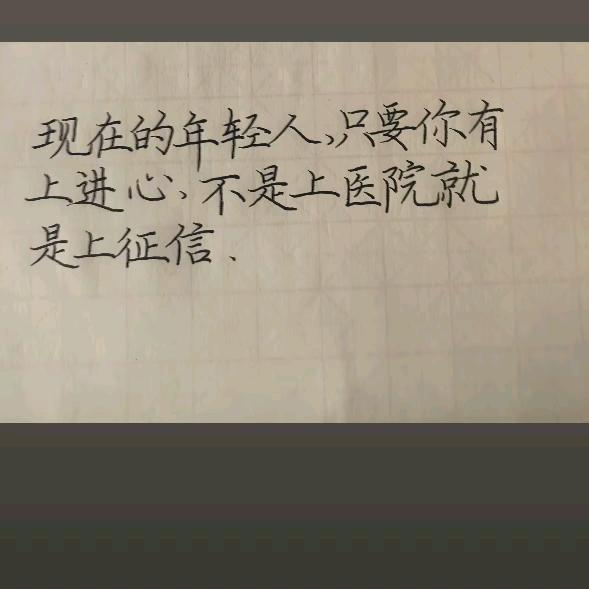 现在的年轻人,只要你有
上进心,不是上医院就
是上征信.